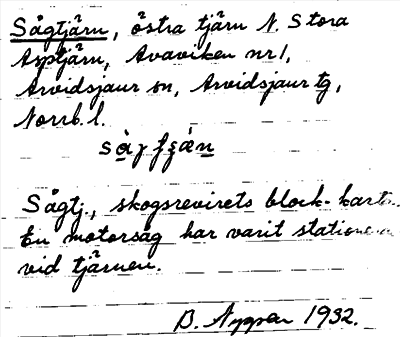 Sågtjärn, östra tjärn N. Stora
Asptjärn, Avaviken nr 1,
Arvidsjaur sn, Arvidsjaur tg,
Norrb. l.
Sågtj., skogsrevirets block-karta.
En motorsåg har varit
vid tjärnen.
B. 1932.